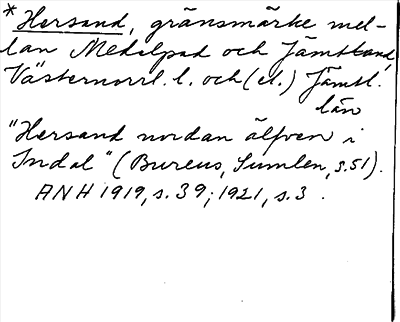 * Hersand, gränsmärke mel-
lan Medelpad och Jämtland,
Västernorrl. l. och (el.) Jämtl.
län
"Hersand nordan älfven i
Indal" (Bureus, Sumlen, s. 51).
ANH 1919, s. 39; 1921, s. 3.